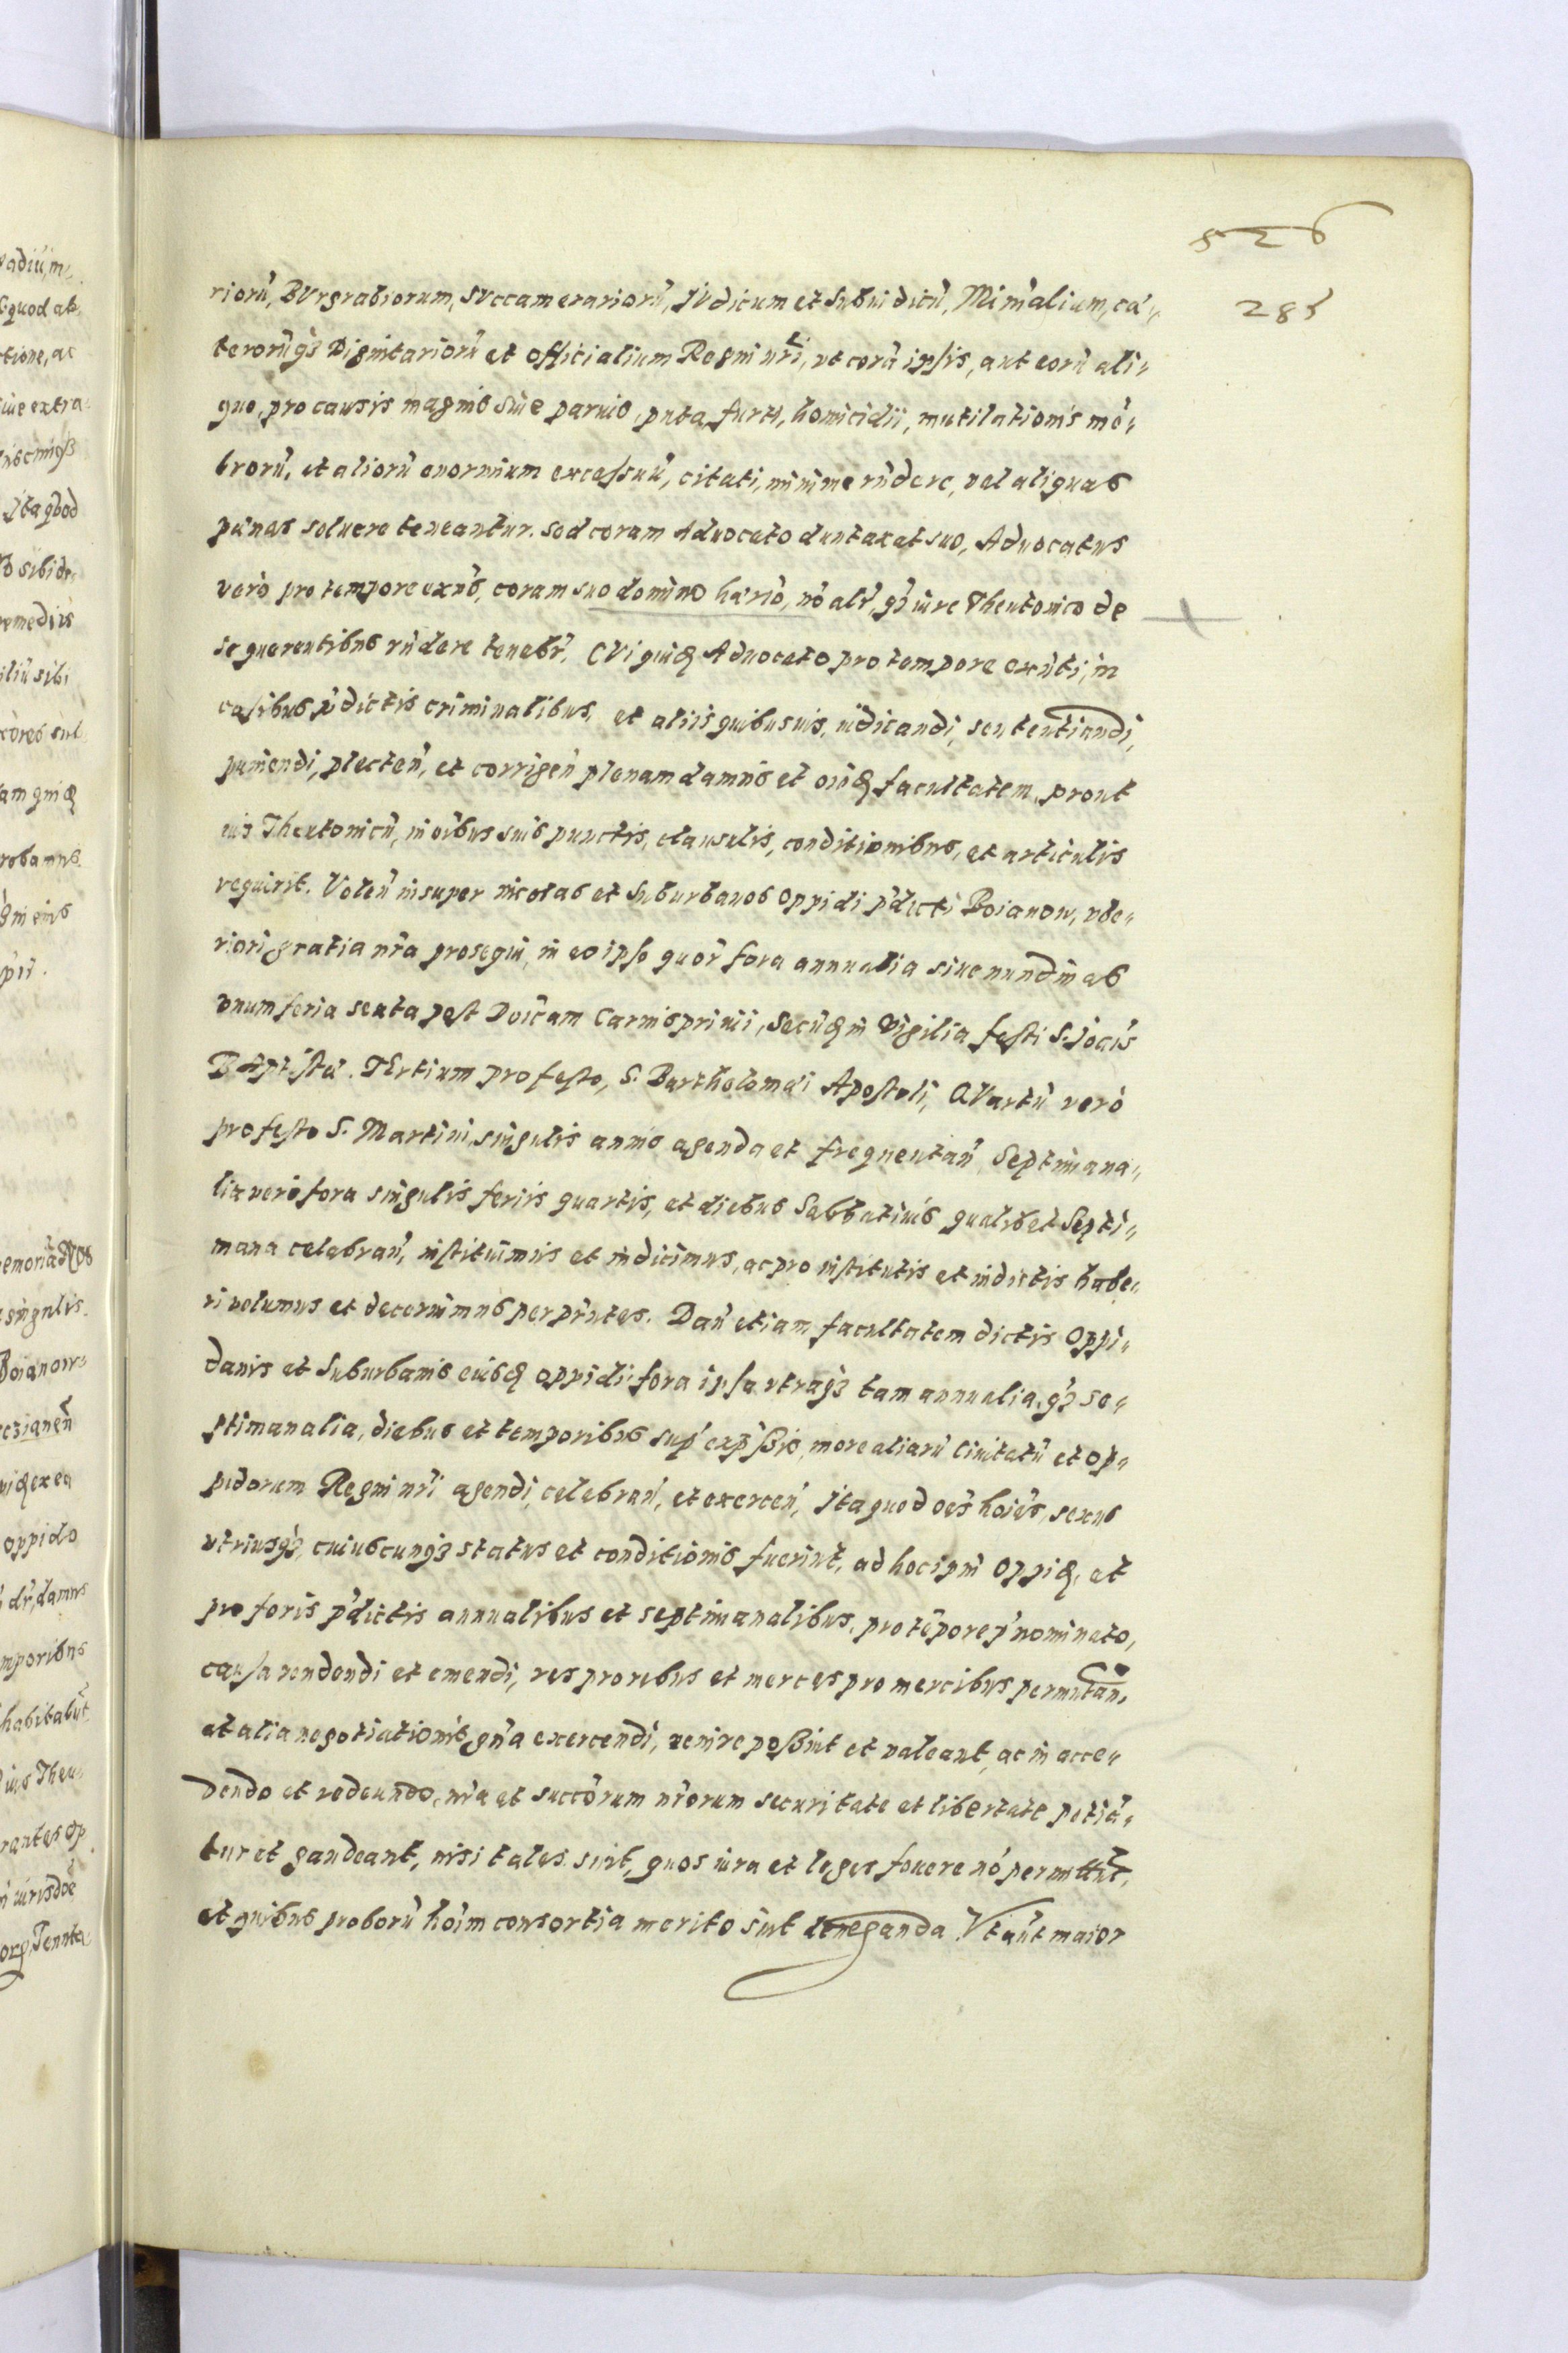 526
285
riorũ, BVrgrabiorum, SVccamerariorũ, JVdicum et Subiudicũ, Minr̃alium, cæ„
terorũq₃ Dignitariorũ et officialium Regni nr̃i, vt corã ipsis, aut eorũ ali„
quo, pro causis magnis siue paruis, puta, furti, homicidii, mutilationis mẽ„
brorũ, et aliorũ enormium excessuũ, citati, minime rñdere, vel aliquas
pænas soluere teneantur. sed coram Aduocato duntaxat suo, Aduocatus
verò pro tempore exñs, coram suo domino hærio, nõ alr̃, q₃ iure Theutonico de
se querentibus rñdere tenebr̃. CVi quidẽ Aduocato pro tempore exñti, in
casibus p̃dictis criminalibus, et aliis quibusuis, iudicandi, sententiandi,
puniendi, plecteñ, et corrigeñ plenam damus et oĩodã facultatem, prout
ius Theutonicũ, in oĩbus suis punctis, clausulis, conditionibus, et articulis
requirit. Voleñ insuper incolas et Suburbanos oppidi p̃dicti Boianow, vbe„
riori gratia nr̃a prosequi, in eo ipso quor̃ fora annualia siue nundinas
vnum feria sexta post Doĩcam Carnispriuii, Secũdũ in Vigilia festi S. Joãis
BAptistæ. TErtium pro festo, S. Bartholomæi Apostoli, QVartũ verò
pro festo S. Martini, singulis annis agenda et frequentañ. Septimana„
lia verò fora singulis feriis quartis, et diebus Sabbatiuis qualibet Septi„
mana celebrañ, instituimus et indicimus, ac pro institutis et indictis habe„
ri volumus et decernimus per p̃ntes. Dañ etiam facultatem dictis Oppi„
danis et Suburbanis eiusdẽ oppidi, fora ipsa vtraq₃ tam annualia, q₃ se„
ptimanalia, diebus et temporibus sup̃ exp̃ßis, more aliarũ Ciuitatũ et op„
pidorum Regni nr̃i agendi, celebrañ, et exerceñ, Jta quod oẽs hoĩes, sexus
vtriusq₃, cuiuscunq₃ status et conditionis fuerint, ad hoc ipm̃ oppidũ, et
pro foris p̃dictis annualibus et septimanalibus, pro tẽpore p̃nominato,
causa vendendi et emendi, res pro rebus et merces pro mercibus permutañ,
et alia negotiationis gñra exercendi, venire poßint et valeant, ac in acce„
dendo et redeundo, nr̃a et succõrum nr̃orum securitate et libertate potiã„
tur et gaudeant, nisi tales sint, quos iura et leges fouere nõ permittũt,
et quibus proborũ hoĩm consortia merito sint deneganda. Vt aũt maior